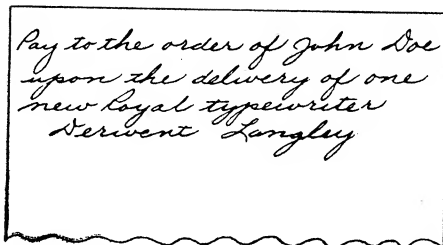 Pay to the order of John Doe
upon the delivery of one
new Royal typewriter
Derwent Langley